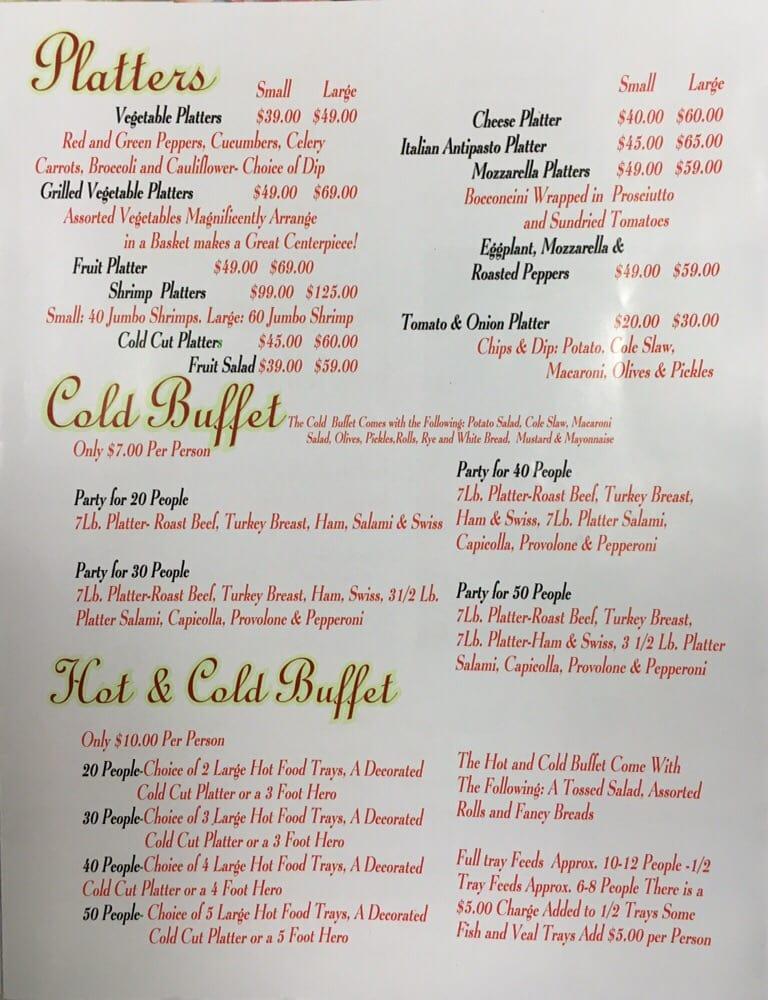 Platters
Small Large
Vegetable Platters $39.00 $49.00
Red and Green Peppers, Cucumbers, Celery
Carrots, Broccoli and Cauliflower- Choice of Dip
Grilled Vegetable Platters $49.00 $69.00
Assorted Vegetables Magnificently Arrange
in a Basket makes a Great Centerpiece!
Fruit Platter $49.00 $69.00
Shrimp Platters $99.00 $125.00
Small: 40 Jumbo Shrimps. Large: 60 Jumbo Shrimp
Cold Cut Platters $45.00 $60.00
Fruit Salad $39.00 $59.00
Small Large
Cheese Platter $40.00 $60.00
Italian Antipasto Platter $45.00 $65.00
Mozzarella Platters $49.00 $59.00
Bocconcini Wrapped in Prosciutto
and Sundried Tomatoes
Eggplant, Mozzarella &
Roasted Peppers $49.00 $59.00
Tomato & Onion Platter $20.00 $30.00
Chips & Dip: Potato, Cole Slaw,
Macaroni, Olives & Pickles
Cold Buffet
The Cold Buffet Comes with the Following: Potato Salad, Cole Slaw, Macaroni
Salad, Olives, Pickles,Rolls, Rye and White Bread, Mustard & Mayonnaise
Only $7.00 Per Person
Party for 20 People
7Lb. Platter- Roast Beef, Turkey Breast, Ham, Salami & Swiss
Party for 30 People
7Lb. Platter-Roast Beef, Turkey Breast, Ham, Swiss, 31/2 Lb.
Platter Salami, Capicolla, Provolone & Pepperoni
Party for 40 People
7Lb. Platter-Roast Beef, Turkey Breast,
Ham & Swiss, 7Lb. Platter Salami,
Capicolla, Provolone & Pepperoni
Party for 50 People
7Lb. Platter-Roast Beef, Turkey Breast,
7Lb. Platter-Ham & Swiss, 3 1/2 Lb. Platter
Salami, Capicolla, Provolone & Pepperoni
Hot & Cold Buffet
Only $10.00 Per Person
20 People-Choice of 2 Large Hot Food Trays, A Decorated
Cold Cut Platter or a 3 Foot Hero
30 People-Choice of 3 Large Hot Food Trays, A Decorated
Cold Cut Platter or a 3 Foot Hero
40 People-Choice of 4 Large Hot Food Trays, A Decorated
Cold Cut Platter or a 4 Foot Hero
50 People- Choice of 5 Large Hot Food Trays, A Decorated
Cold Cut Platter or a 5 Foot Hero
The Hot and Cold Buffet Come With
The Following: A Tossed Salad, Assorted
Rolls and Fancy Breads
Full tray Feeds Approx. 10-12 People -1/2
Tray Feeds Approx. 6-8 People There is a
$5.00 Charge Added to 1/2 Trays Some
Fish and Veal Trays Add $5.00 per Person